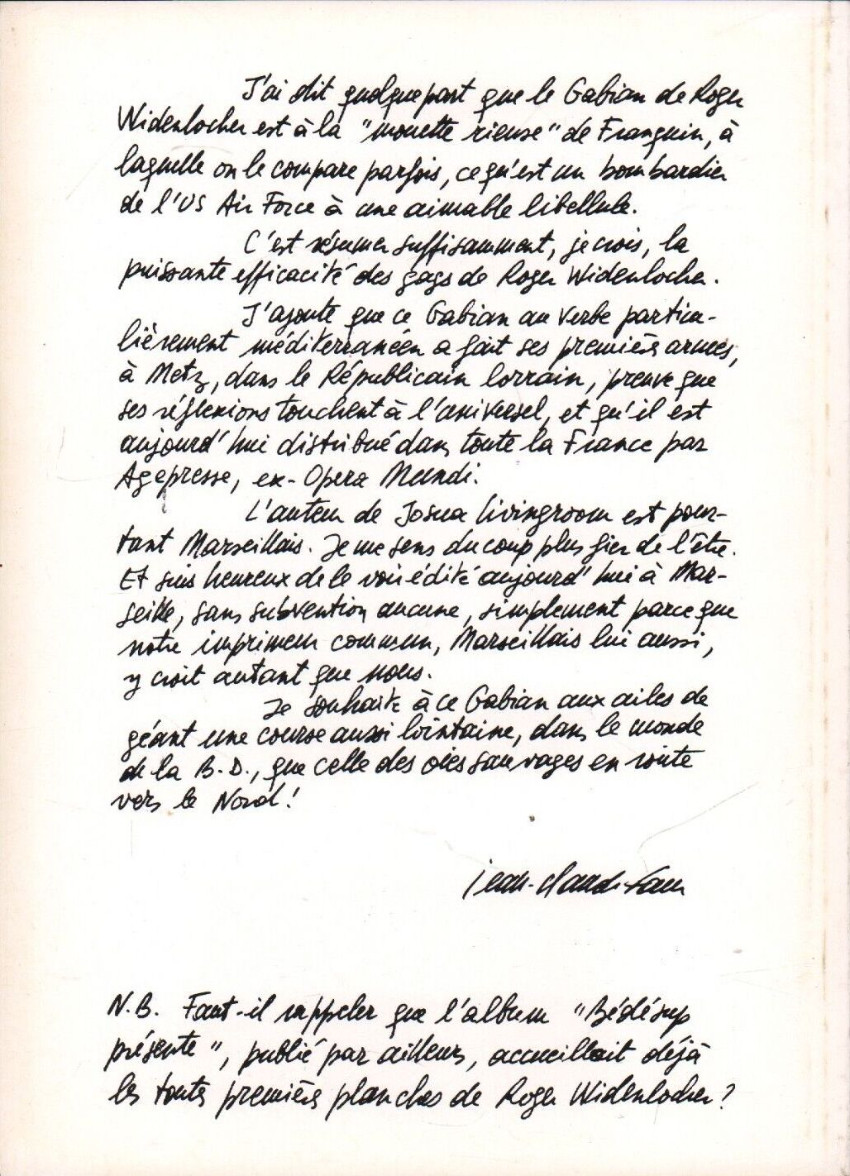 J'ai dit quelque part que le Gabian de Roger
Widenlocher est à la "mouette rieuse" de Franquin, à
laquelle on le compare parfois, ce qu'est un bombardier
de l'US Air Force à une aimable libellule.
C'est résumer suffisamment, je crois, la
puissante efficacité des gags de Roger Widenlocher.
J'ajoute que ce Gabian au verbe particu-
lièrement méditerranéen a fait ses premières armes,
à Metz, dans le Républicain lorrain, preuve que
ses réflexions touchent à l'universel, et qu'il est
aujourd'hui distribué dans toute la France par
Agepresse, ex-Opera Mundi.
L'auteur de Josua Livingroom est pour-
tant Marseillais. Je me sens du coup plus fier de l'être.
Et suis heureux de le voir édité aujourd'hui à Mar-
seille, sans subvention aucune, simplement parce que
notre imprimeur commun, Marseillais lui aussi,
y croit autant que nous.
Je souhaite à ce Gabian aux ailes de
géant une course aussi lointaine, dans le monde
de la B.D., que celle des oies sauvages en route
vers le Nord!
jean-claude
N.B. Faut-il rappeler que l'album "Bédésup
présente", publié par ailleurs, accueillait déjà
les toutes premières planches de Roger Widenlocher?